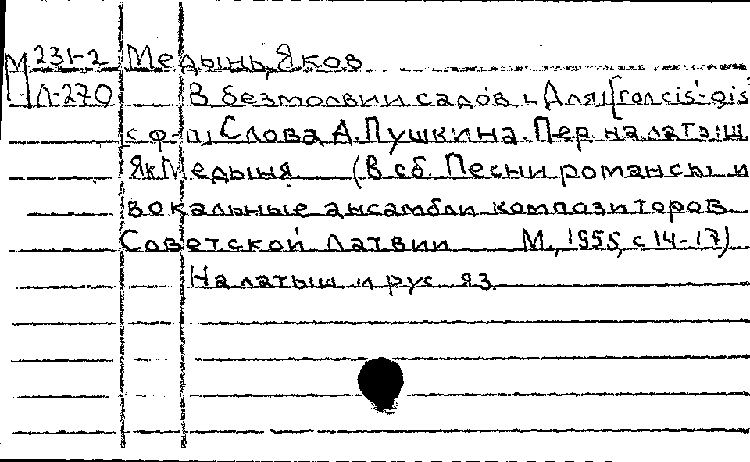 М 231-2 Медынь, Яков
Л-270 В безмолвии садов. Для
с ф-п, Слова А. Пушкина. Пер. на латыш
Як Медыня (В сб. Песни романсы и
вокальные ансамбли композиторов
Советской Латвии М., 1955, с 14-17)
На латыш и рус яз.